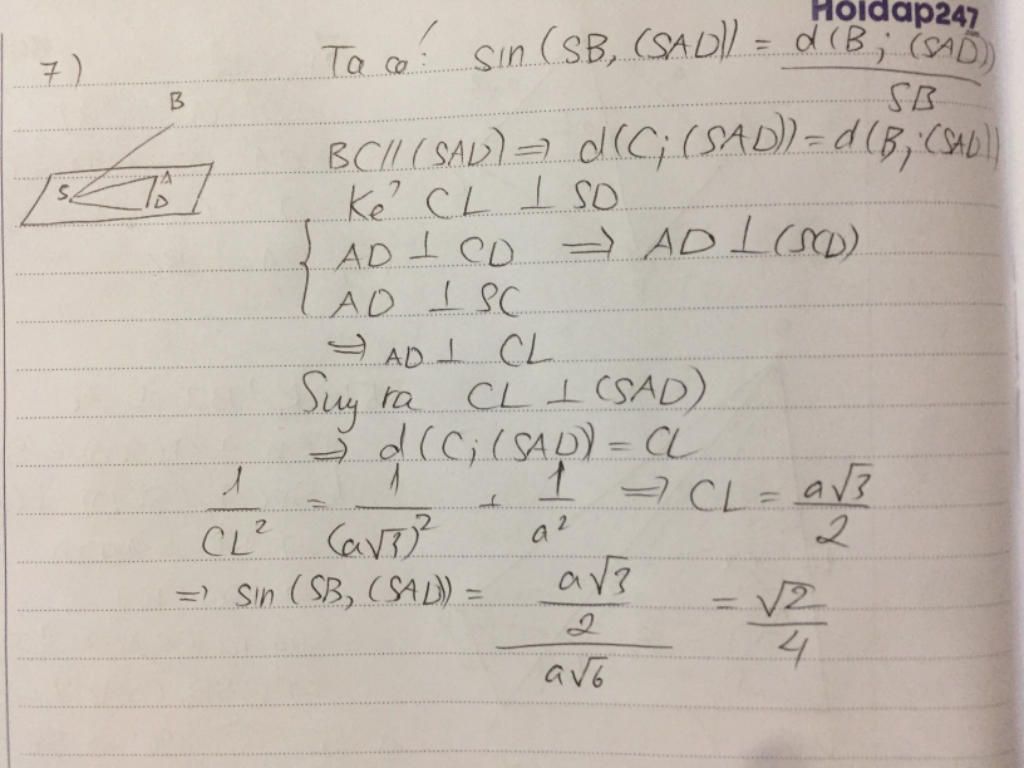 Hoidap247
7) Ta có: sin(SB, (SAD)) = d(B; (SAD)) / SB
B
S A D
BC // (SAD) => d(C; (SAD)) = d(B; (SAD))
Kẻ CL ⊥ SD
{ AD ⊥ CD => AD ⊥ (SCD)
AD ⊥ SC
=> AD ⊥ CL
Suy ra CL ⊥ (SAD)
=> d(C; (SAD)) = CL
1/CL² = 1/(a√3)² + 1/a² => CL = a√3/2
=> sin(SB, (SAD)) = (a√3/2)/(a√6) = √2/4